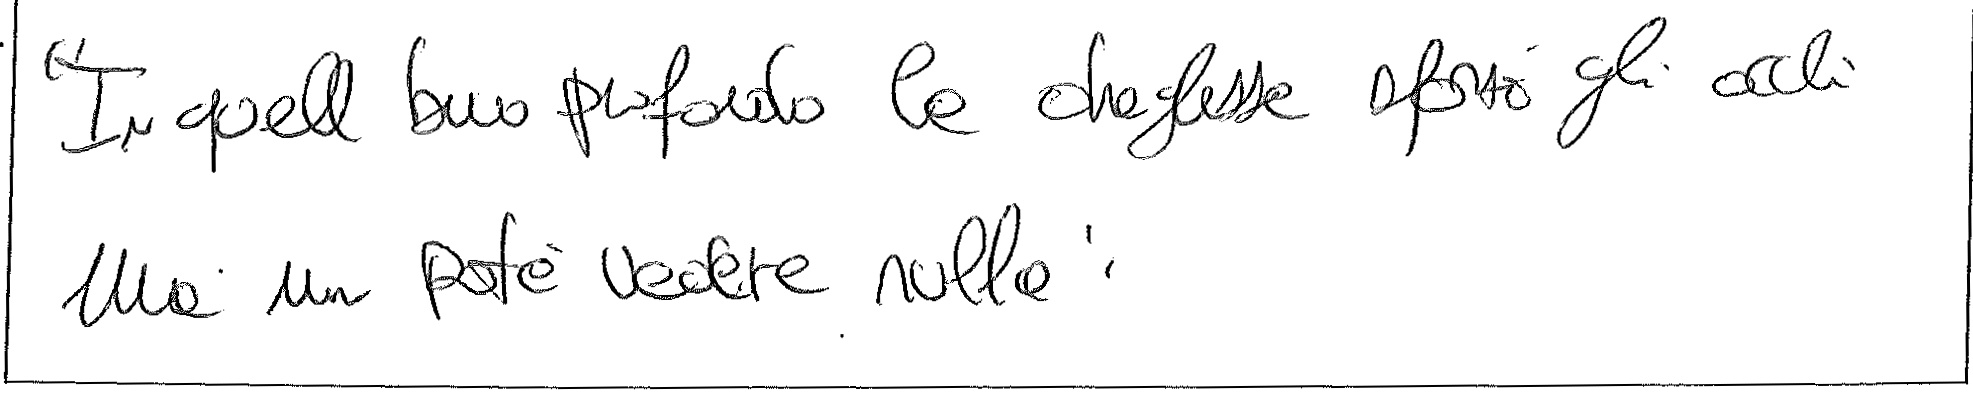 "In quell buio profondo la draghessa sforzò gli occhi
Ma non poté vedere nulla".